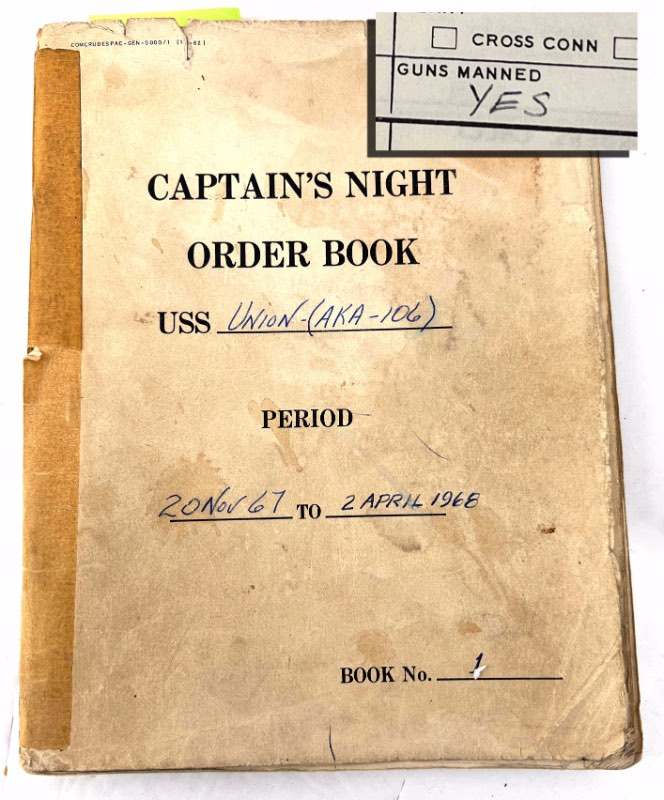 COMCRUDESPAC-GEN-5000/1
CROSS CONN
GUNS MANNED
YES
CAPTAIN'S NIGHT
ORDER BOOK
USS UNION-(AKA-106)
PERIOD
20 NOV 67 TO 2 APRIL 1968
BOOK No. 1